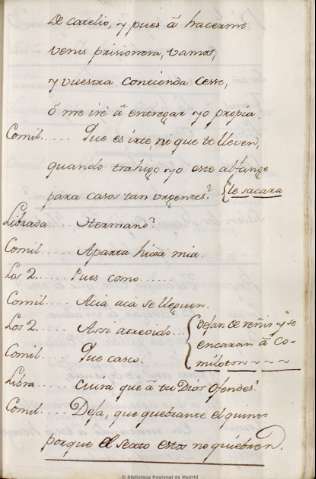 De carelio, y pues â hacerme
venis prisionera, vamos,
y vuestra contienda cesse,
ô me iré â entregar yo propia.
Comil..... Que es irte, ni que te lleven,
quando trahigo yo este alfange
para casos tan urgentes? {le sacara
Librada.... Hermano?
Comil..... Aparta hixa mia.
Los 2.... Pues como.....
Comil..... Acá acá se lleguen.
Los 2.... Assi atrevido. {Dejan de reñir y se
encaran â Co-
miloton~~~
Comil..... Que casco.
Libra..... Cuida que â tu Dios ofendes.
Comil..... Deja, que quebrante el quinto
porque el sexto estos no quiebren.
© Biblioteca Nacional de Madrid